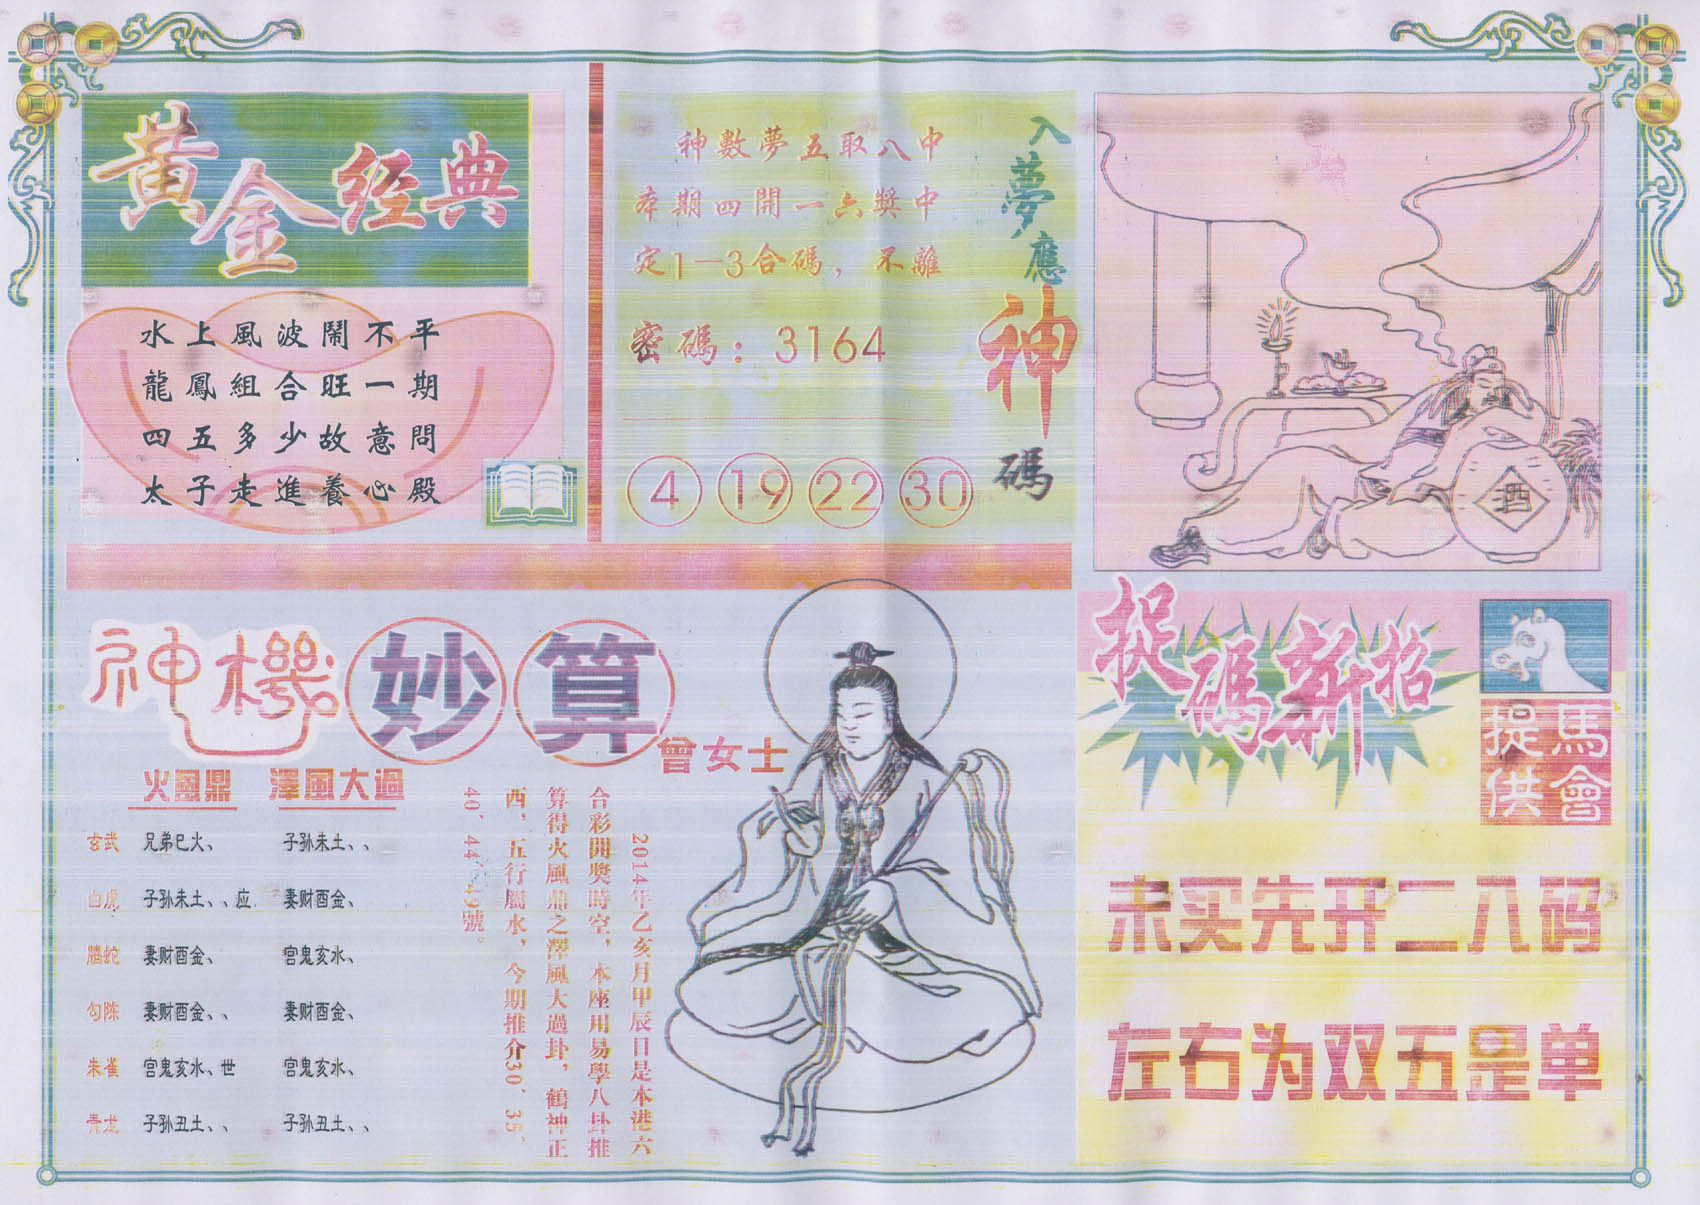 黃金經典
水上風波鬧不平
龍鳳組合旺一期
四五多少故意問
太子走進養心殿
神數夢五取八中
本期四開一六獎中
定1—3合碼，不離
密碼：3164
4 19 22 30
入夢應神碼
酒
神機妙算
曾女士
火風鼎 澤風大過
玄武 兄弟巳火、 子孙未土、、
白虎 子孙未土、、应 妻财酉金、
螣蛇 妻财酉金、 官鬼亥水、
勾陈 妻财酉金、、 妻财酉金、
朱雀 官鬼亥水、世 官鬼亥水、
青龙 子孙丑土、、 子孙丑土、、
2014年乙亥月甲辰日是本港六
合彩開獎時空，本座用易學八卦推
算得火風鼎之澤風大過卦，鶴神正
西，五行屬水，今期推介30、35、
40、44、49號。
捉碼新招
馬會
捉供
未买先开二八码
左右为双五是单